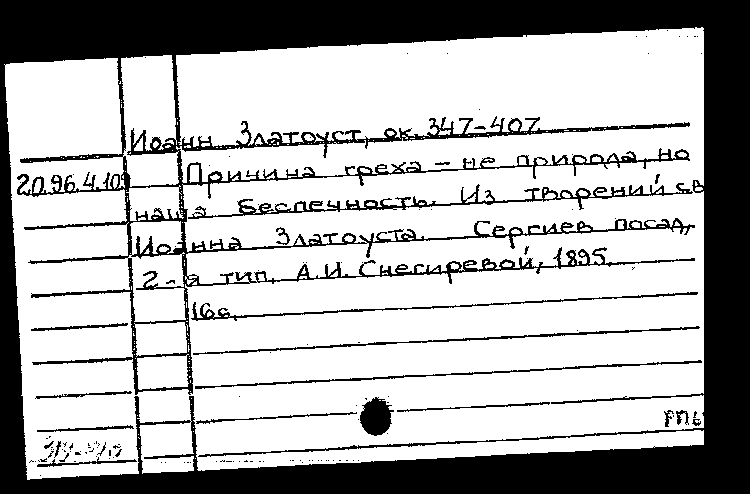 Иоанн Златоуст, ок. 347-407.
20.96.4.109 Причина греха - не природа, но
наша беспечность. Из творений св
Иоанна Златоуста. Сергиев посад,
2-я тип. А.И. Снегиревой, 1895.
16с.
РПб